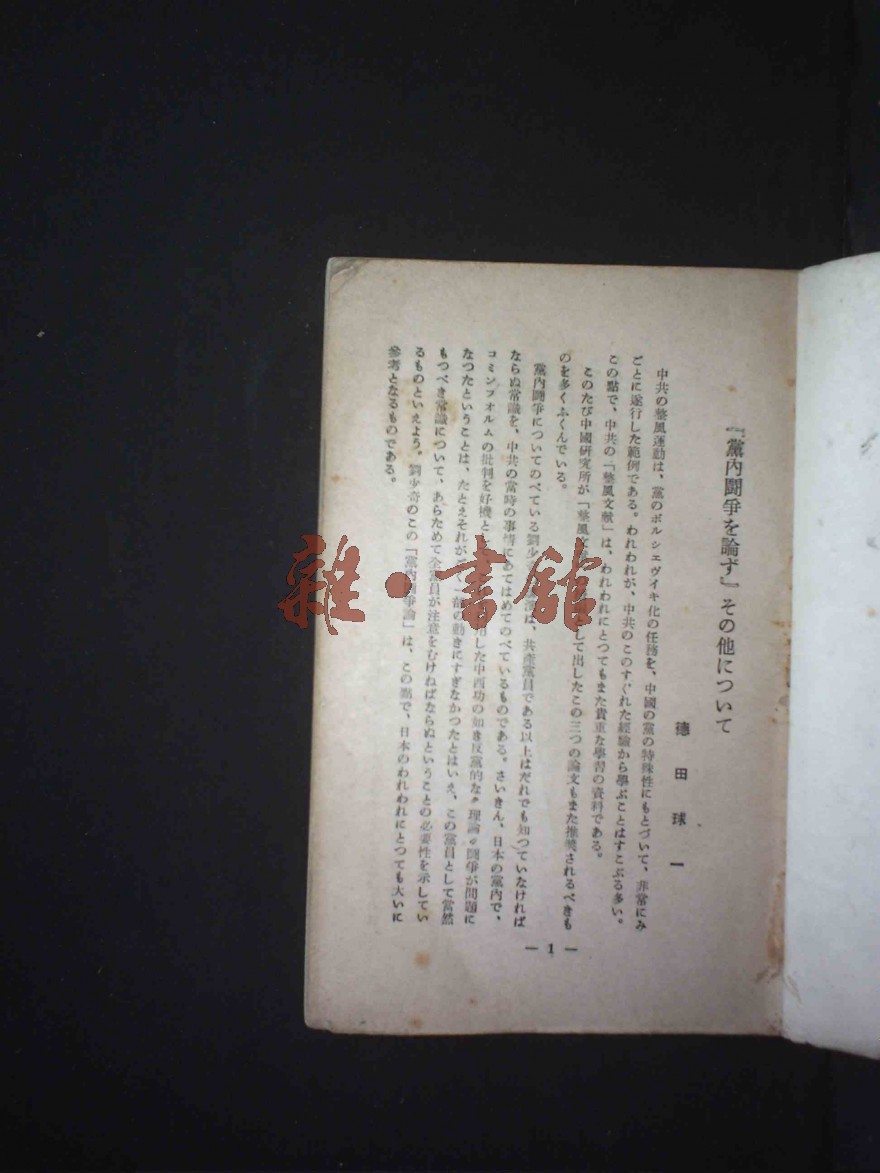 『黨內鬪爭を論ず』その他について
德田球一
中共の整風運動は、黨のボルシェヴイキ化の任務を、中國の黨の特殊性にもとづいて、非常にみ
ごとに遂行した範例である。われわれが、中共のこのすぐれた經驗から學ぶことはすこぶる多い。
この點で、中共の「整風文献」は、われわれにとつてもまた貴重な學習の資料である。
このたび中國硏究所が「整風文 として出したこの三つの論文もまた推奬されるべきも
のを多くふくんでいる。
黨內鬪爭についてのべている劉少 は、共產黨員である以上はだれでも知つていなければ
ならぬ常識を、中共の當時の事情にあてはめてのべているものである。さいきん、日本の黨內で、
コミンフオルムの批判を好機と 用した中西功の如き反黨的な〃理論〃鬪爭が問題に
なつたということは、たとえそれがごく一部の動きにすぎなかつたとはいえ、この黨員として當然
もつべき常識について、あらためて全黨員が注意をむけねばならぬということの必要性を示してい
るものといえよう。劉少奇のこの「黨內鬪爭論」は、この點で、日本のわれわれにとつても大いに
參考となるものである。
— 1 —
雜·書館